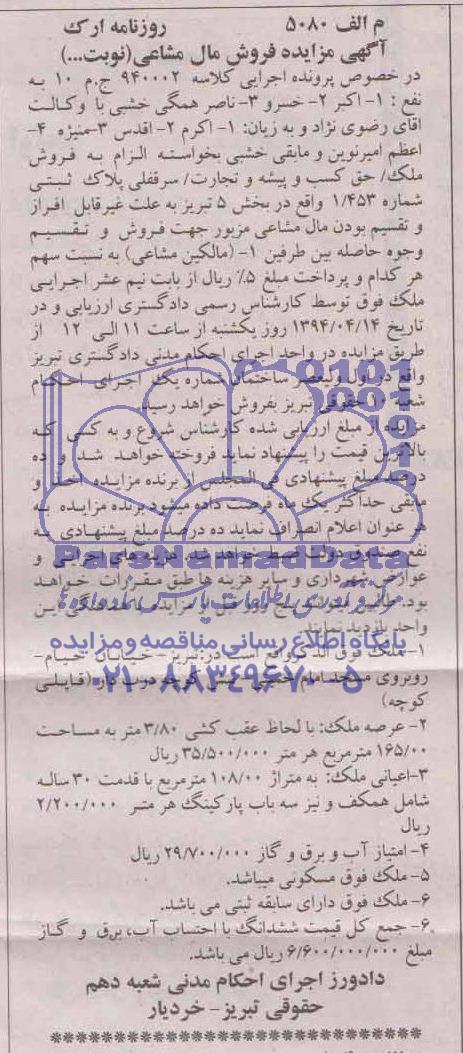 م الف ۵۰۸۰ روزنامه ارک
آگهی مزایده فروش مال مشاعی (نوبت...)
در خصوص پرونده اجرایی کلاسه ۹۴۰۰۰۲ ج.م ۱۰ به
نفع : ۱- اکبر ۲- خسرو ۳- ناصر همگی خشبی با وکالت
اقای رضوی نژاد و به زیان: ۱- اکرم ۲- اقدس ۳- منیژه ۴-
اعظم امیرنوین و مابقی خشبی بخواسته الزام به فروش
ملک/ حق کسب و پیشه و تجارت/ سرقفلی پلاک ثبتی
شماره ۱/۴۵۳ واقع در بخش ۵ تبریز به علت غیرقابل افراز
و تقسیم بودن مال مشاعی مزبور جهت فروش و تقسیم
وجوه حاصله بین طرفین ۱- (مالکین مشاعی) به نسبت سهم
هر کدام و پرداخت مبلغ ۵٪ ریال از بابت نیم عشر اجرایی
ملک فوق توسط کارشناس رسمی دادگستری ارزیابی و در
تاریخ ۱۳۹۴/۰۴/۱۴ روز یکشنبه از ساعت ۱۱ الی ۱۲ از
طریق مزایده در واحد اجرای احکام مدنی دادگستری تبریز
واقع در اول ولیعصر ساختمان شماره یک اجرای احکام
شعبه ۱۰ حقوقی تبریز بفروش خواهد رسید.
مزایده از مبلغ ارزیابی شده کارشناس شروع و به کسی که
بالاترین قیمت را پیشنهاد نماید فروخته خواهد شد و ده
درصد مبلغ پیشنهادی فی المجلس از برنده مزایده اخذ و
مابقی حداکثر یک ماه فرصت داده میشود برنده مزایده به
هر عنوان اعلام انصراف نماید ده درصد مبلغ پیشنهادی به
نفع صندوق دولت ضبط خواهد شد. هزینه های اجرایی و
عوارض شهرداری و سایر هزینه ها طبق مقررات خواهد
بود. طالبین میتوانند پنج روز قبل از مزایده با هماهنگی این
واحد بازدید نمایند
۱- ملک فوق الذکر واقع است در: تبریز- خیابان خیام-
روبروی مسجد امام خمینی- کوچه درب دار (قابلی
کوچه)
۲- عرصه ملک: با لحاظ عقب کشی ۳/۸۰ متر به مساحت
۱۶۵/۰۰ مترمربع هر متر ۳۵/۵۰۰/۰۰۰ ریال
۳- اعیانی ملک: به متراژ ۱۰۸/۰۰ مترمربع با قدمت ۳۰ ساله
شامل همکف و نیز سه باب پارکینگ هر متر ۲/۲۰۰/۰۰۰
ریال
۴- امتیاز آب و برق و گاز ۲۹/۷۰۰/۰۰۰ ریال
۵- ملک فوق مسکونی میباشد.
۶- ملک فوق دارای سابقه ثبتی می باشد.
۶- جمع کل قیمت ششدانگ با احتساب آب، برق و گاز
مبلغ ۶/۶۰۰/۰۰۰/۰۰۰ ریال می باشد.
دادورز اجرای احکام مدنی شعبه دهم
حقوقی تبریز - خردیار
ParsNamadData
پایگاه اطلاع رسانی مناقصه و مزایده
۰۲۱-۸۸۳۴۹۶۷۰-۵